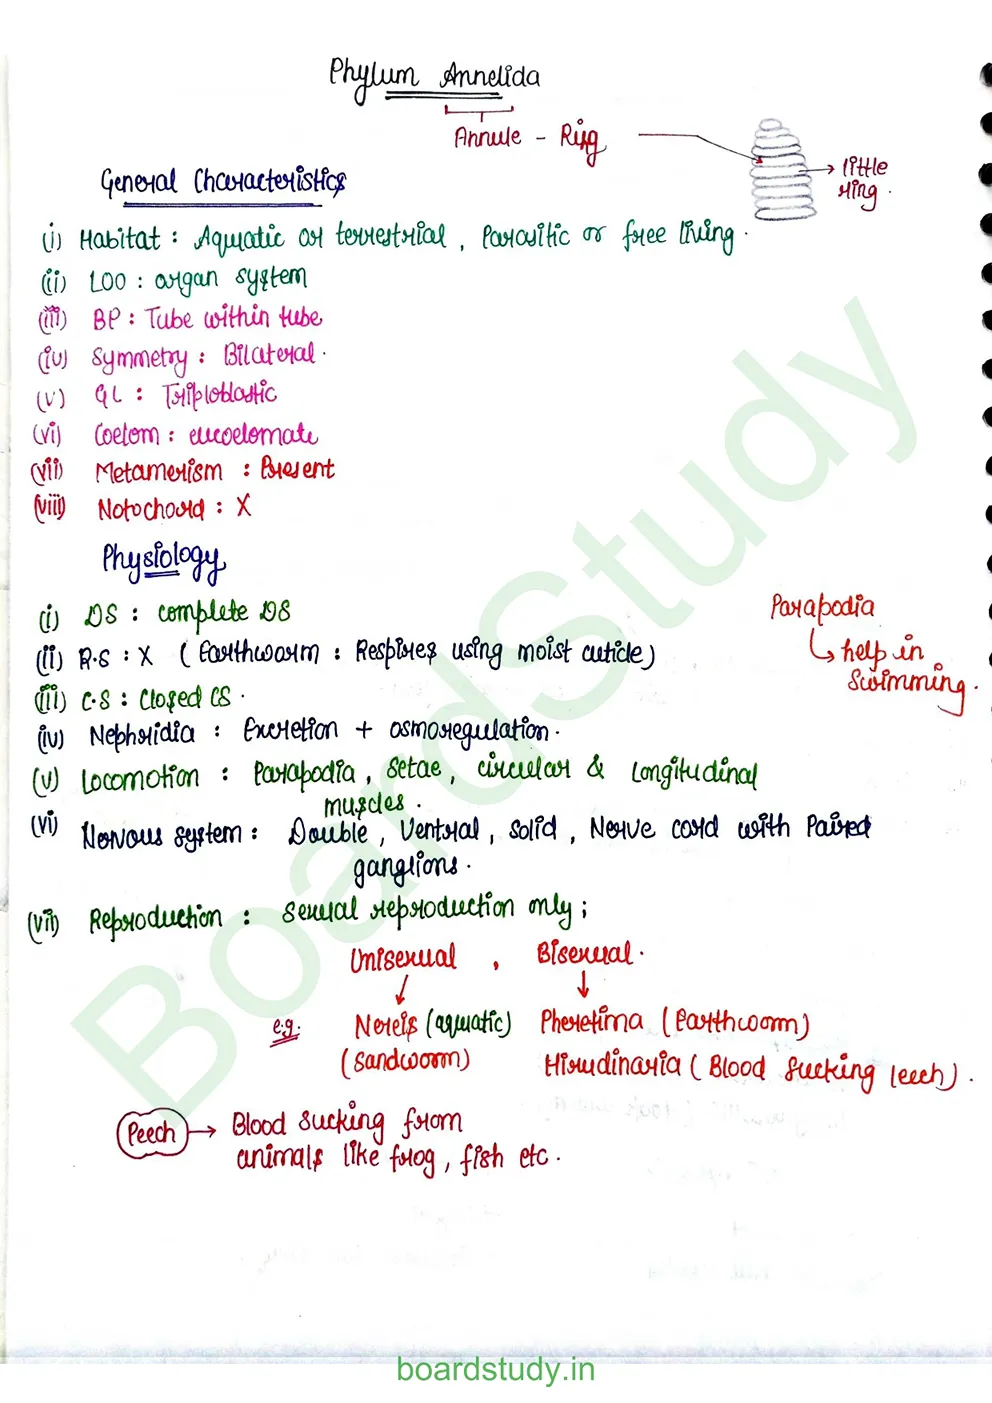 Phylum Annelida
Annule - Ring
little
ring.
General Characteristics
(i) Habitat : Aquatic or terrestrial, Parasitic or free living.
(ii) LOO : organ system
(iii) BP : Tube within tube
(iv) Symmetry : Bilateral.
(v) GL : Triploblastic
(vi) Coelom : eucoelomate
(vii) Metamerism : Present
(viii) Notochord : X
Physiology
(i) DS : complete DS
(ii) R.S : X (Earthworm : Respires using moist cuticle)
(iii) C.S : Closed CS.
(iv) Nephridia : Excretion + osmoregulation.
(v) Locomotion : Parapodia, Setae, circular & Longitudinal
muscles.
Parapodia
↳ help in
Swimming.
(vi) Nervous system : Double, Ventral, solid, Nerve cord with Paired
ganglions.
(vii) Reproduction : Sexual reproduction only;
Unisexual , Bisexual.
e.g. Nereis (aquatic) Pheretima (Earthworm)
(Sandworm) Hirudinaria (Blood Sucking leech).
Peech → Blood sucking from
animals like frog, fish etc.
BoardStudy
boardstudy.in